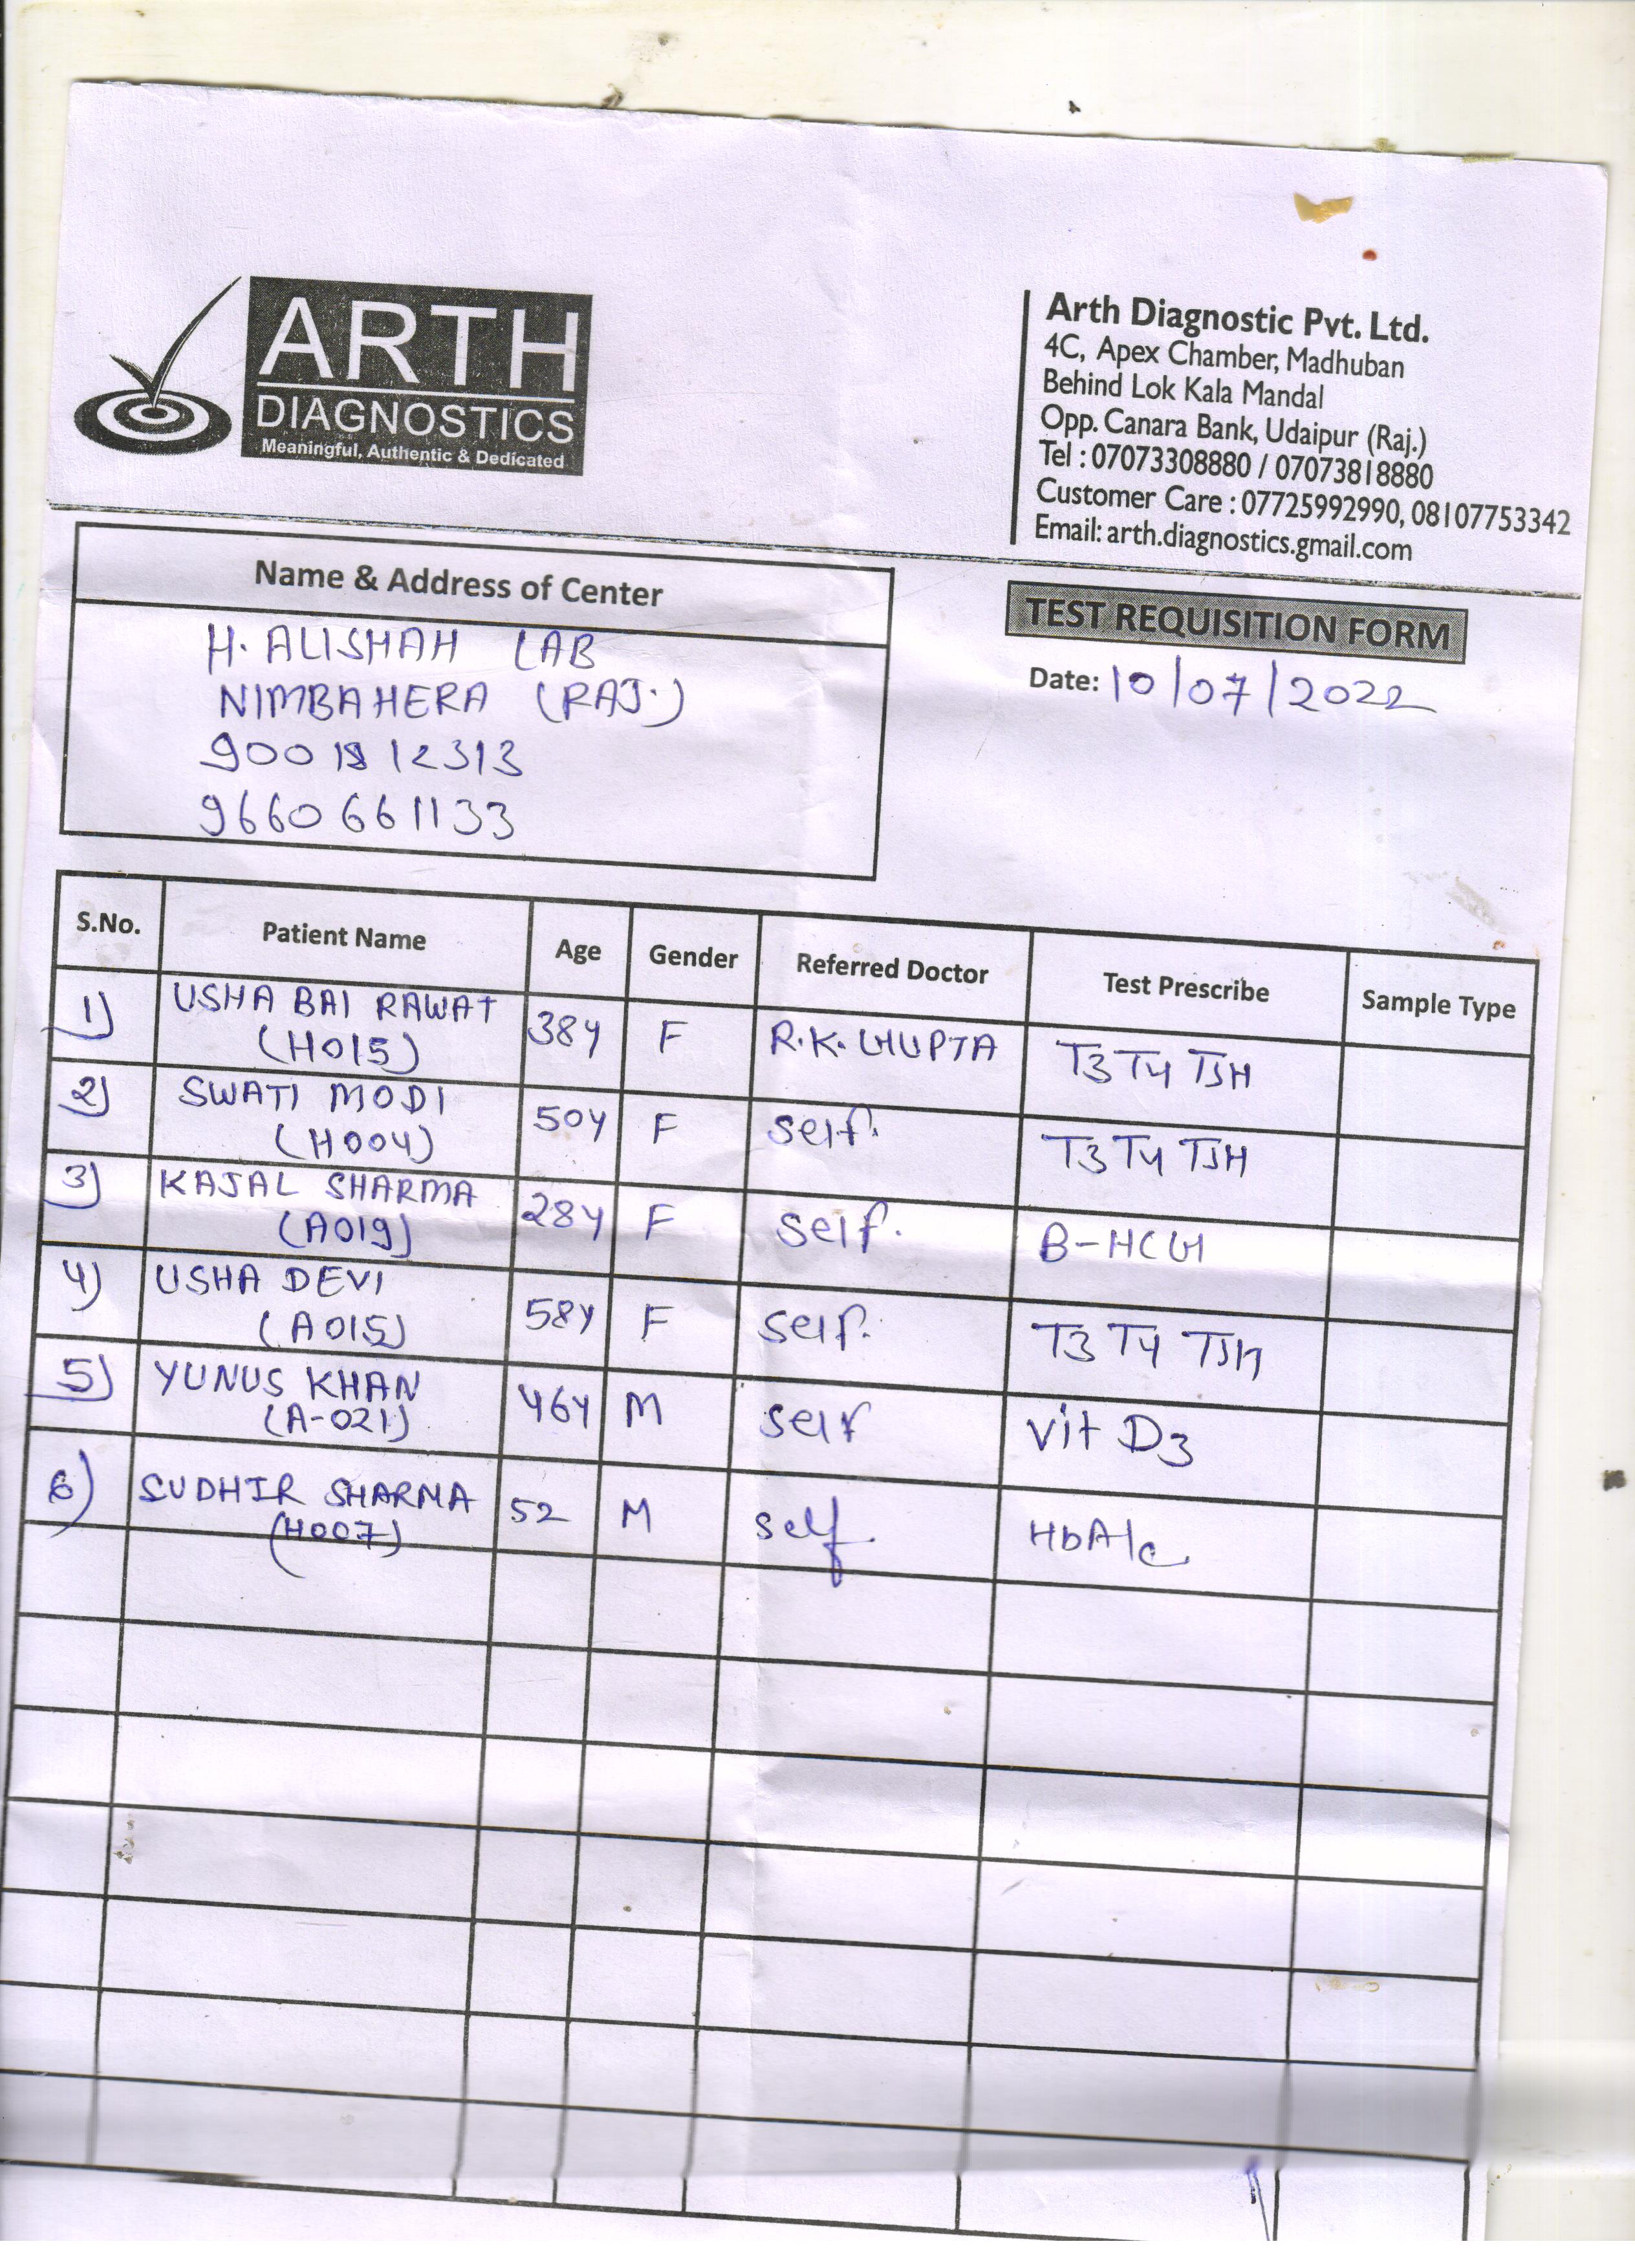 ARTH
DIAGNOSTICS
Meaningful, Authentic & Dedicated
Arth Diagnostic Pvt. Ltd.
4C, Apex Chamber, Madhuban
Behind Lok Kala Mandal
Opp. Canara Bank, Udaipur (Raj.)
Tel : 07073308880 / 07073818880
Customer Care : 07725992990, 08107753342
Email: arth.diagnostics.gmail.com
Name & Address of Center
H. ALISHAH LAB
NIMBAHERA (RAJ.)
9660661133
TEST REQUISITION FORM
Date: 10/07/2022
S.No. Patient Name Age Gender Referred Doctor Test Prescribe Sample Type
1) USHA BAI RAWAT 38y F R.K. GUPTA T3 T4 TSH
(H015)
2) SWATI MODI 50y F self. T3 T4 TSH
(H004)
3) KAJAL SHARMA 28y F self. B-HCG
(A019)
4) USHA DEVI 58y F self. T3 T4 TSH
(A015)
5) YUNUS KHAN 46y M self Vit D3
(A-021)
6) SUDHIR SHARMA 52 M self HbA1c
(H007)